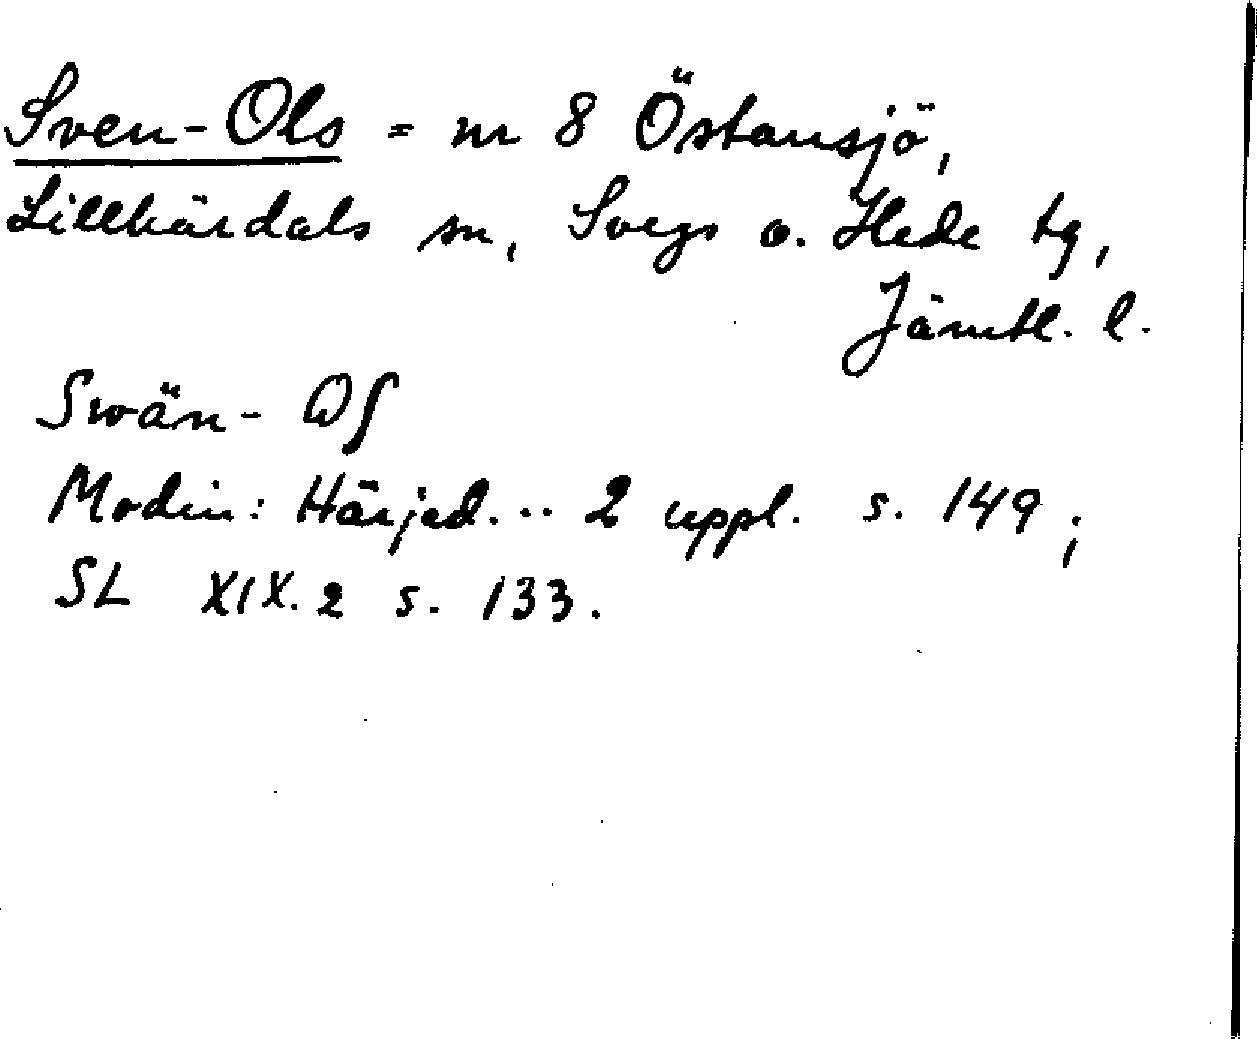 Sven-Ols = nr 8 Östansjö,
Lillhärdals sn, Svegs o. Hede tg,
Jämtl. l.
Swän-
Modin: Härjed... 2 uppl. s. 149;
SL XIX.2 s. 133.